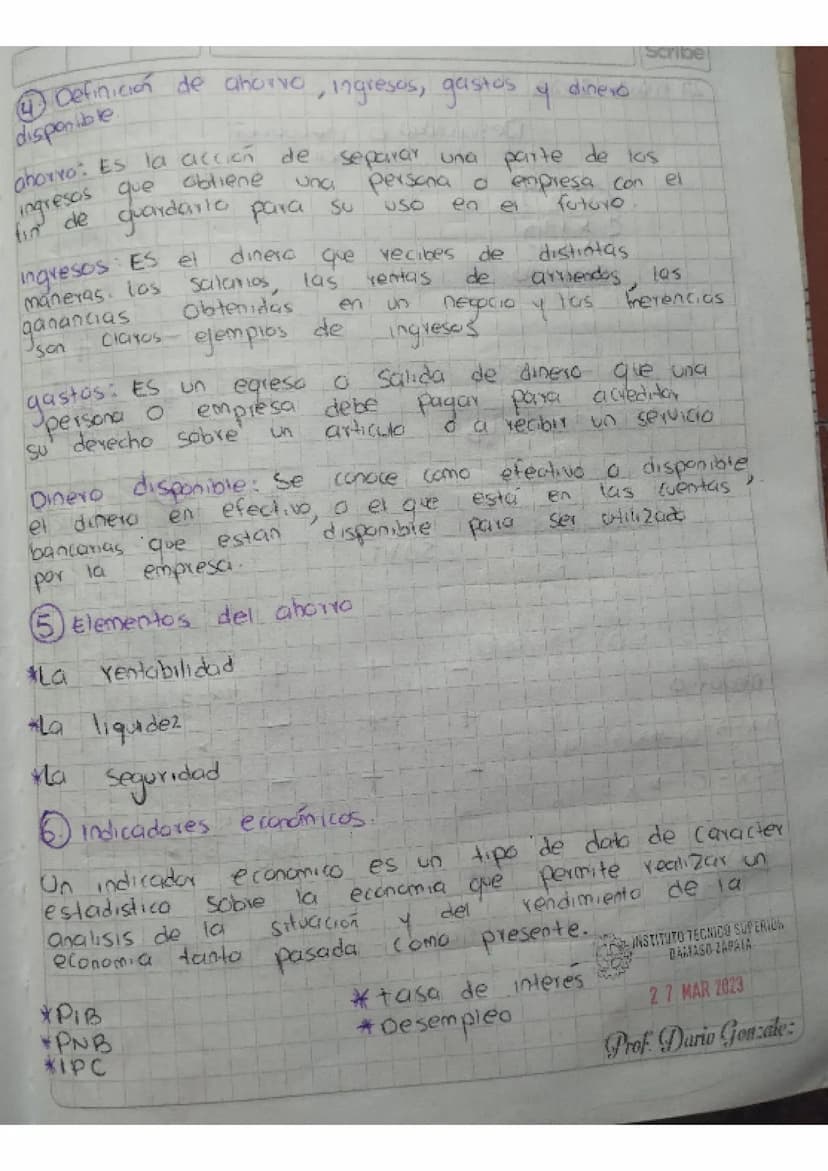 Scribe
④ Definición de ahorro, ingresos, gastos y dinero
disponible
ahorro: Es la acción de separar una parte de los
ingresos que obtiene una persona o empresa con el
fin de guardarlo para su uso en el futuro.
ingresos: Es el dinero que recibes de distintas
maneras. los salarios, las rentas de arriendos, las
ganancias obtenidas en un negocio y las herencias
son claros ejemplos de ingresos
gastos: Es un egreso o salida de dinero que una
persona o empresa debe pagar para acreditar
su derecho sobre un articulo o a recibir un servicio
Dinero disponible: Se conoce como efectivo o disponible,
el dinero en efectivo, o el que está en las cuentas
bancarias que estan disponible para ser utilizado
por la empresa.
⑤ Elementos del ahorro
*La rentabilidad
*La liquidez
*La seguridad
⑥ indicadores económicos.
Un indicador economico es un tipo de dato de caracter
estadistico sobre la economia que permite realizar un
analisis de la situación y del rendimiento de la
economia tanto pasada como presente.
*PiB
*PNB
*IPC
*tasa de interés
*Desempleo
INSTITUTO TECNICO SUPERIOR
DAMASO ZAPATA
27 MAR 2023
Prof. Dario Gonzalez